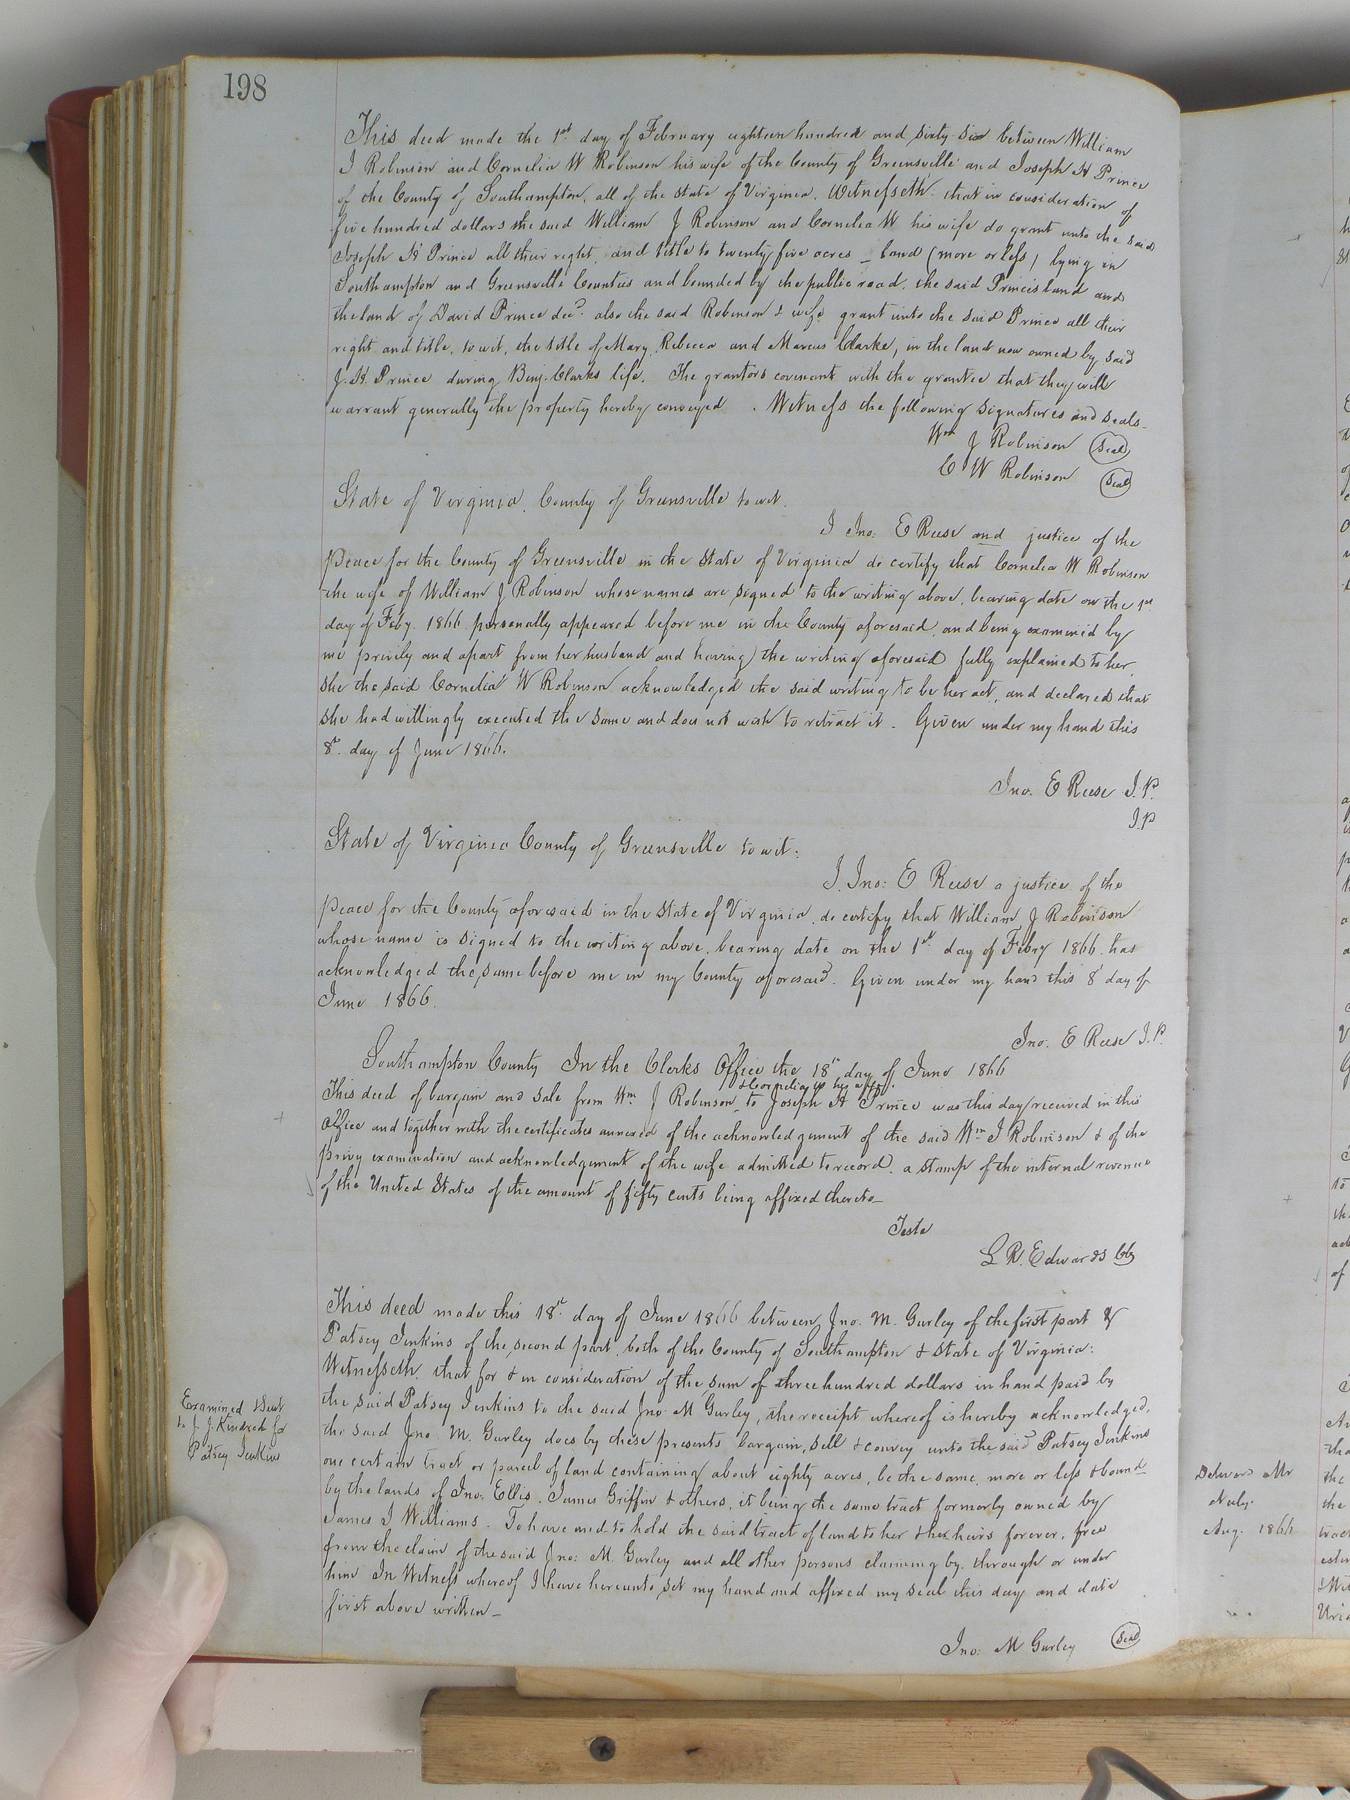 198
This deed made the 1st day of February eighteen hundred and sixty six between William
J Robinson and Cornelia W Robinson his wife of the County of Greensville and Joseph H Prince
of the County of Southampton, all of the state of Virginia. Witnesseth that in consideration of
five hundred dollars the said William J Robinson and Cornelia W his wife do grant unto the said
Joseph H Prince all their right, and title to twenty five acres - land (more or less) lying in
Southampton and Greensville Counties and bounded by the public road, the said Princes land and
the land of David Prince decd. also the said Robinson & wife grant unto the said Prince all their
right and title, to wit, the title of Mary, Rebecca and Marcus Clarke, in the land now owned by said
J. H. Prince during Benj. Clarks life. The grantors covenant with the grantee that they will
warrant generally the property hereby conveyed. Witness the following signatures and seals-
Wm J Robinson Seal
C W Robinson Seal
State of Virginia, County of Greensville to wit.
I Jno: E Reese and justice of the
Peace for the County of Greensville in the State of Virginia do certify that Cornelia W Robinson
the wife of William J Robinson whose names are signed to the writing above, bearing date on the 1st
day of Feby. 1866 personally appeared before me in the County aforesaid, and being examined by
me privily and apart from her husband and having the writing aforesaid fully explained to her,
she the said Cornelia W Robinson acknowledged the said writing to be her act, and declared that
she had willingly executed the same and does not wish to retract it - Given under my hand this
8th day of June 1866.
Jno. E Reese J.P.
J.P
State of Virginia County of Greensville to wit:
I, Jno: E Reese a justice of the
peace for the County aforesaid in the State of Virginia, do certify that William J Robinson
whose name is signed to the writing above, bearing date on the 1st day of Feby 1866 has
acknowledged the same before me in my County aforesaid. Given under my hand this 8 day of
June 1866.
Jno. E Reese J.P.
Southampton County In the Clerks Office the 18th day of June 1866
& Cornelia W his wife
This deed of bargain and sale from Wm J Robinson to Joseph H Prince was this day received in this
Office and together with the certificates annexed of the acknowledgment of the said Wm J Robinson & of the
privy examination and acknowledgment of the wife admitted to record, a stamp of the internal revenue
of the United States of the amount of fifty cents being affixed thereto-
Teste
L R. Edwards
This deed made this 18th day of June 1866 between Jno. M. Gurley of the first part &
Patsey Jenkins of the second part, both of the County of Southampton & State of Virginia:
Witnesseth, that for & in consideration of the sum of three hundred dollars in hand paid by
the said Patsey Jenkins to the said Jno M Gurley, the receipt whereof is hereby acknowledged,
the said Jno. M. Gurley does by these presents bargain, sell & convey unto the said Patsey Jenkins
one certain tract or parcel of land containing about eighty acres, be the same more or less & bound
by the lands of Jno. Ellis, James Griffin & others, it being the same tract formerly owned by
James J Williams. To have and to hold the said tract of land to her & her heirs forever, free
from the claim of the said Jno: M. Gurley and all other persons claiming by, through or under
him In Witness whereof I have hereunto set my hand and affixed my seal this day and date
first above written-
Jno: M Gurley Seal
Examined & Sent
to J. J. Kindred for
Patsey Jenkins
Aug. 1866